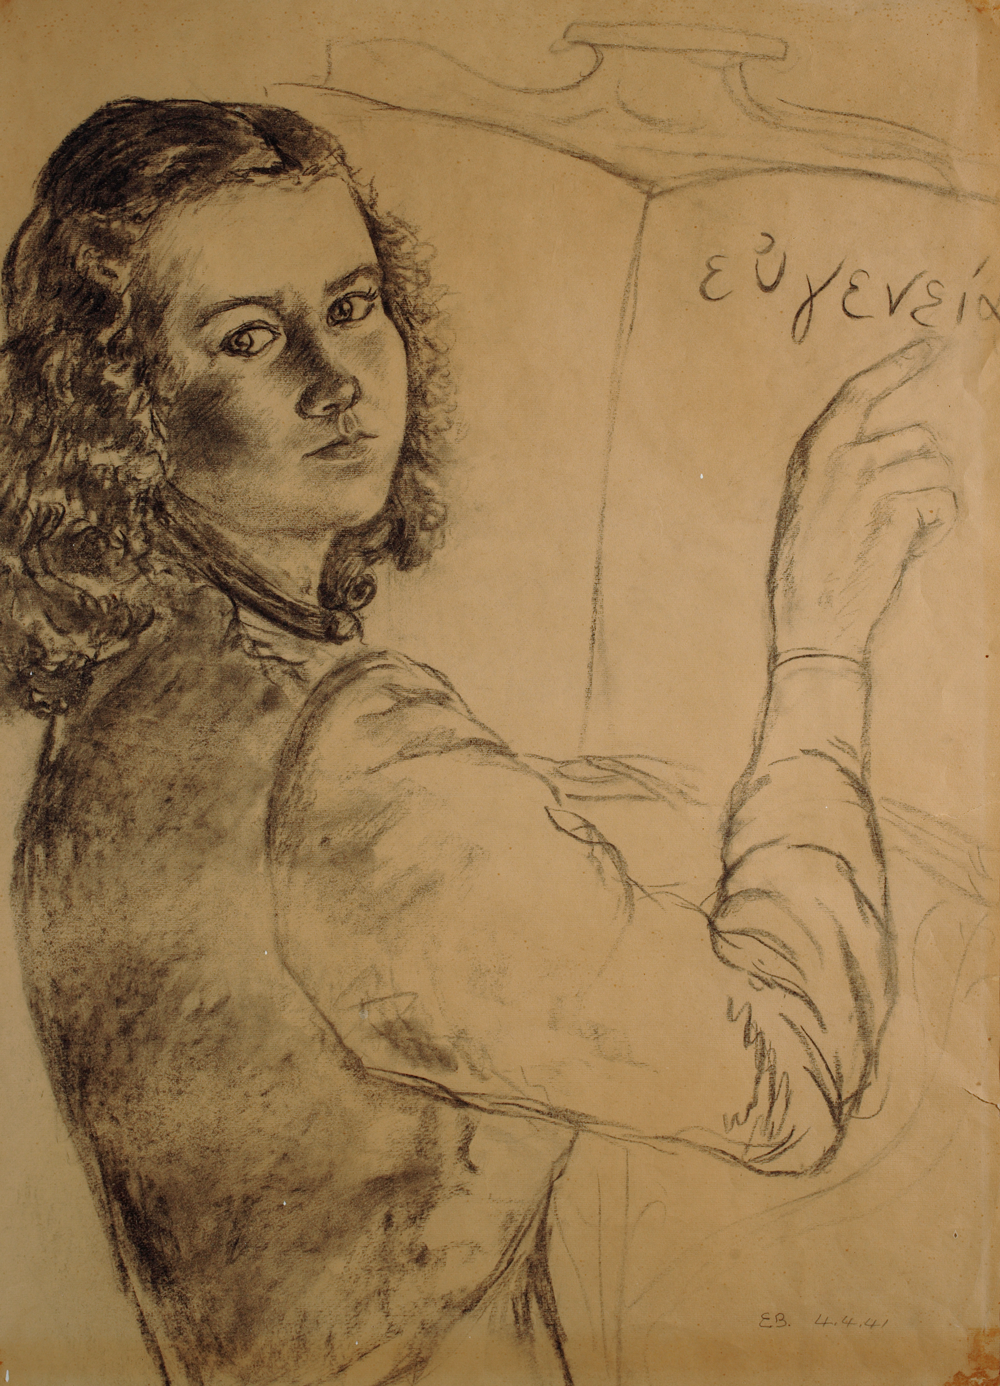 εὐγενεία
EB. 4.4.41